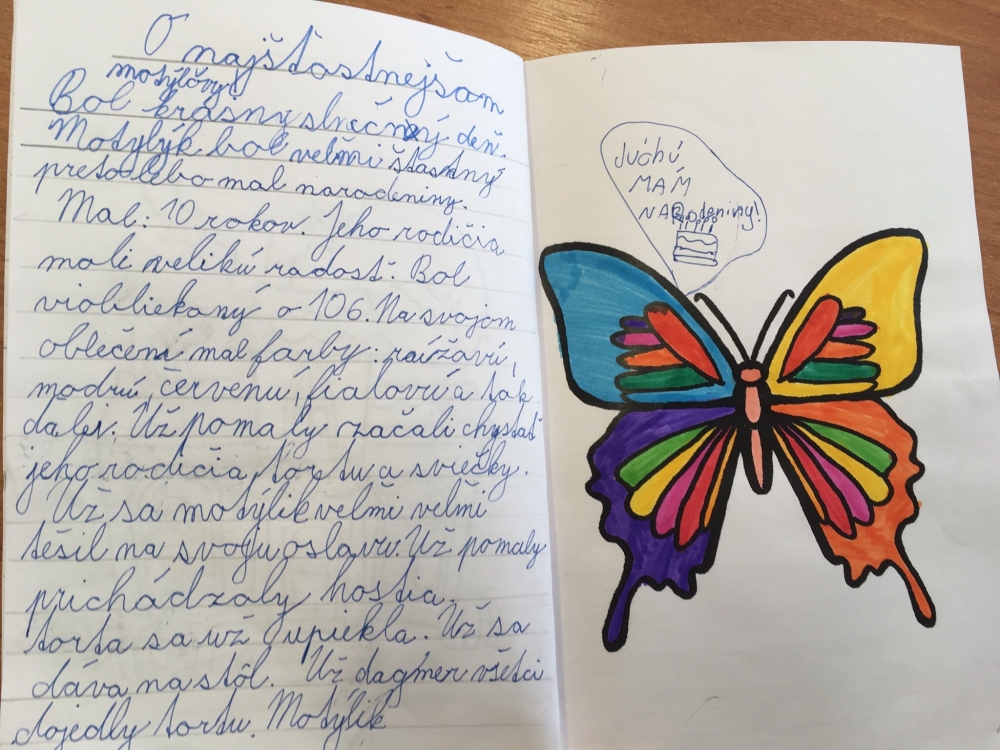 O najšťastnejšom
motýľovy
Bol krásny slnečný deň.
Motylýk bol veľmi štastný
preto lebo mal narodeniny.
Mal: 10 rokov. Jeho rodičia
mali velikú radosť. Bol
viobliekaný o 106. Na svojom
oblečení mal farby: ružovú,
modrú, červenú, fialovú a tak
ďalej. Už pomaly začali chystať
jeho rodičia tortu a sviečky.
Už sa motýlik veľmi veľmi
tešil na svoju oslavu. Už pomaly
prichádzaly hostia.
torta sa už upiekla. Už sa
dáva na stôl. Už dagmer všetci
dojedly tortu. Motýlik
JUCHÚ
MÁM
NARodeniny!